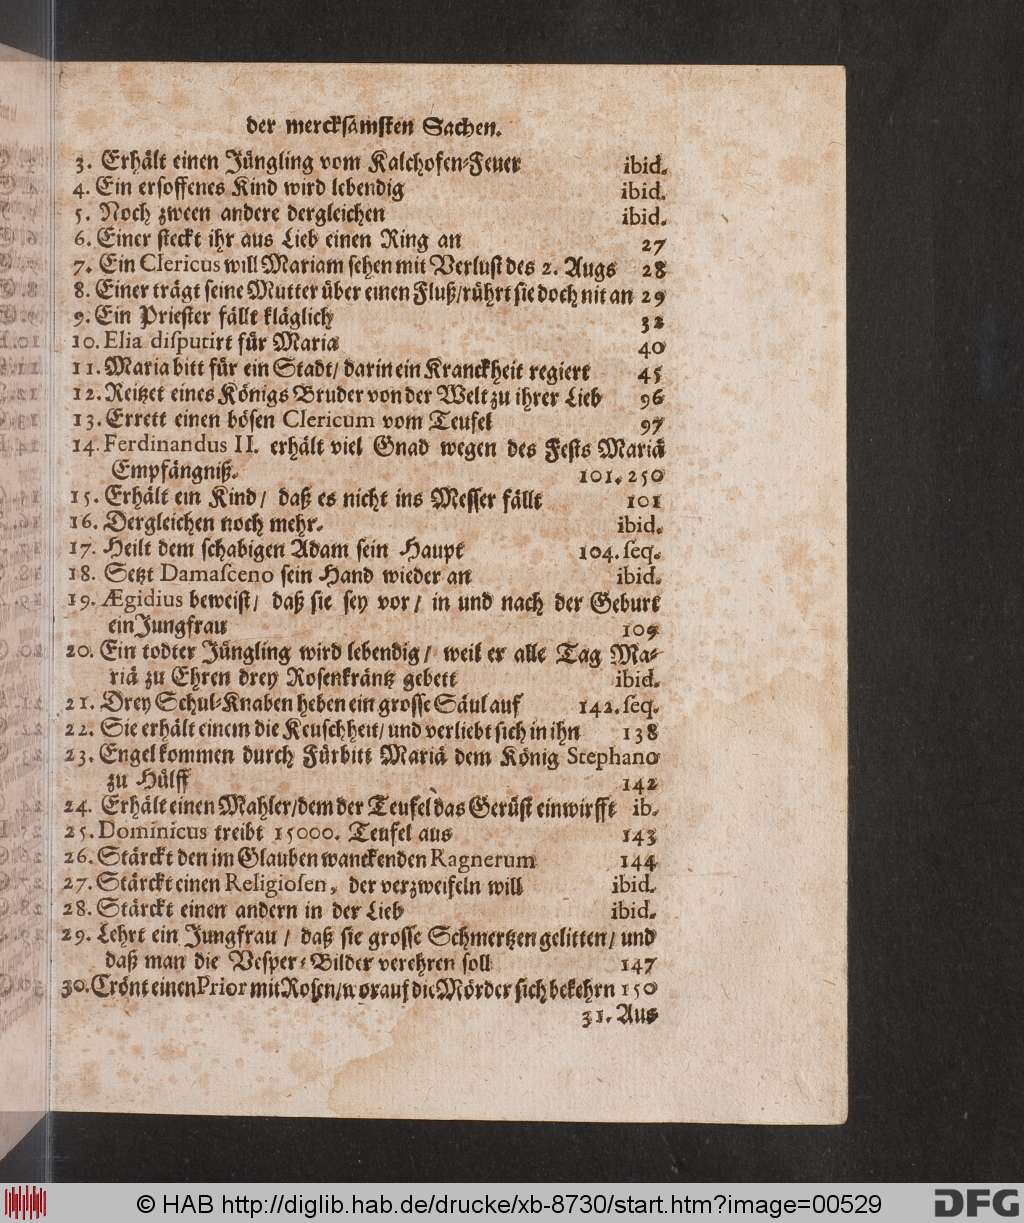 der mercksamsten Sachen.
3. Erhält einen Jüngling vom Kalchofen-Feuer ibid.
4. Ein ersoffenes Kind wird lebendig ibid.
5. Noch zween andere dergleichen ibid.
6. Einer steckt ihr aus Lieb einen Ring an 27
7. Ein Clericus will Mariam sehen mit Verlust des 2. Augs 28
8. Einer trägt seine Mutter über einen Fluß/ rührt sie doch nit an 29
9. Ein Priester fällt kläglich 32
10. Elia disputirt für Maria 40
11. Maria bitt für ein Stadt/ darin ein Kranckheit regiert 45
12. Reitzet eines Königs Bruder von der Welt zu ihrer Lieb 96
13. Errett einen bösen Clericum vom Teufel 97
14. Ferdinandus II. erhält viel Gnad wegen des Fests Mariä
Empfängniß. 101. 250
15. Erhält ein Kind/ daß es nicht ins Messer fällt 101
16. Dergleichen noch mehr. ibid.
17. Heilt dem schabigen Adam sein Haupt 104. seq.
18. Setzt Damasceno sein Hand wieder an ibid.
19. Ægidius beweist/ daß sie sey vor/ in und nach der Geburt
ein Jungfrau 109
20. Ein todter Jüngling wird lebendig/ weil er alle Tag Ma-
riä zu Ehren drey Rosenkräntz gebett ibid.
21. Drey Schul-Knaben heben ein grosse Säul auf 142. seq.
22. Sie erhält einem die Keuschheit/ und verliebt sich in ihn 138
23. Engel kommen durch Fürbitt Mariä dem König Stephano
zu Hülff 142
24. Erhält einen Mahler/ dem der Teufel das Gerüst einwirfft ib.
25. Dominicus treibt 15000. Teufel aus 143
26. Stärckt den im Glauben wanckenden Ragnerum 144
27. Stärckt einen Religiosen, der verzweifeln will ibid.
28. Stärckt einen andern in der Lieb ibid.
29. Lehrt ein Jungfrau/ daß sie grosse Schmertzen gelitten/ und
daß man die Vesper-Bilder verehren soll 147
30. Crönt einen Prior mit Rosen/ worauf die Mörder sich bekehrn 150
31. Aus
© HAB http://diglib.hab.de/drucke/xb-8730/start.htm?image=00529
DFG